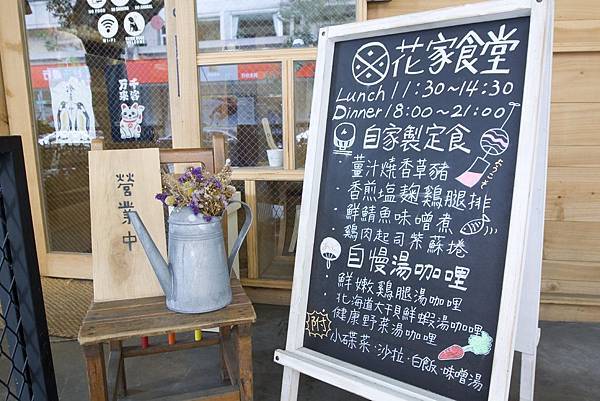 花家食堂
Lunch 11:30~14:30
Dinner 18:00~21:00
自家製定食
・薑汁燒香草豬
・香煎塩麴雞腿排
・鮮鯖魚味噌煮
・雞肉起司紫蘇捲
ようこそ
自慢湯咖哩
・鮮嫩雞腿湯咖哩
・北海道大干貝鮮蝦湯咖哩
・健康野菜湯咖哩
附 小碟菜・沙拉・白飯・味噌湯
營業中
Wi-Fi
千客万来